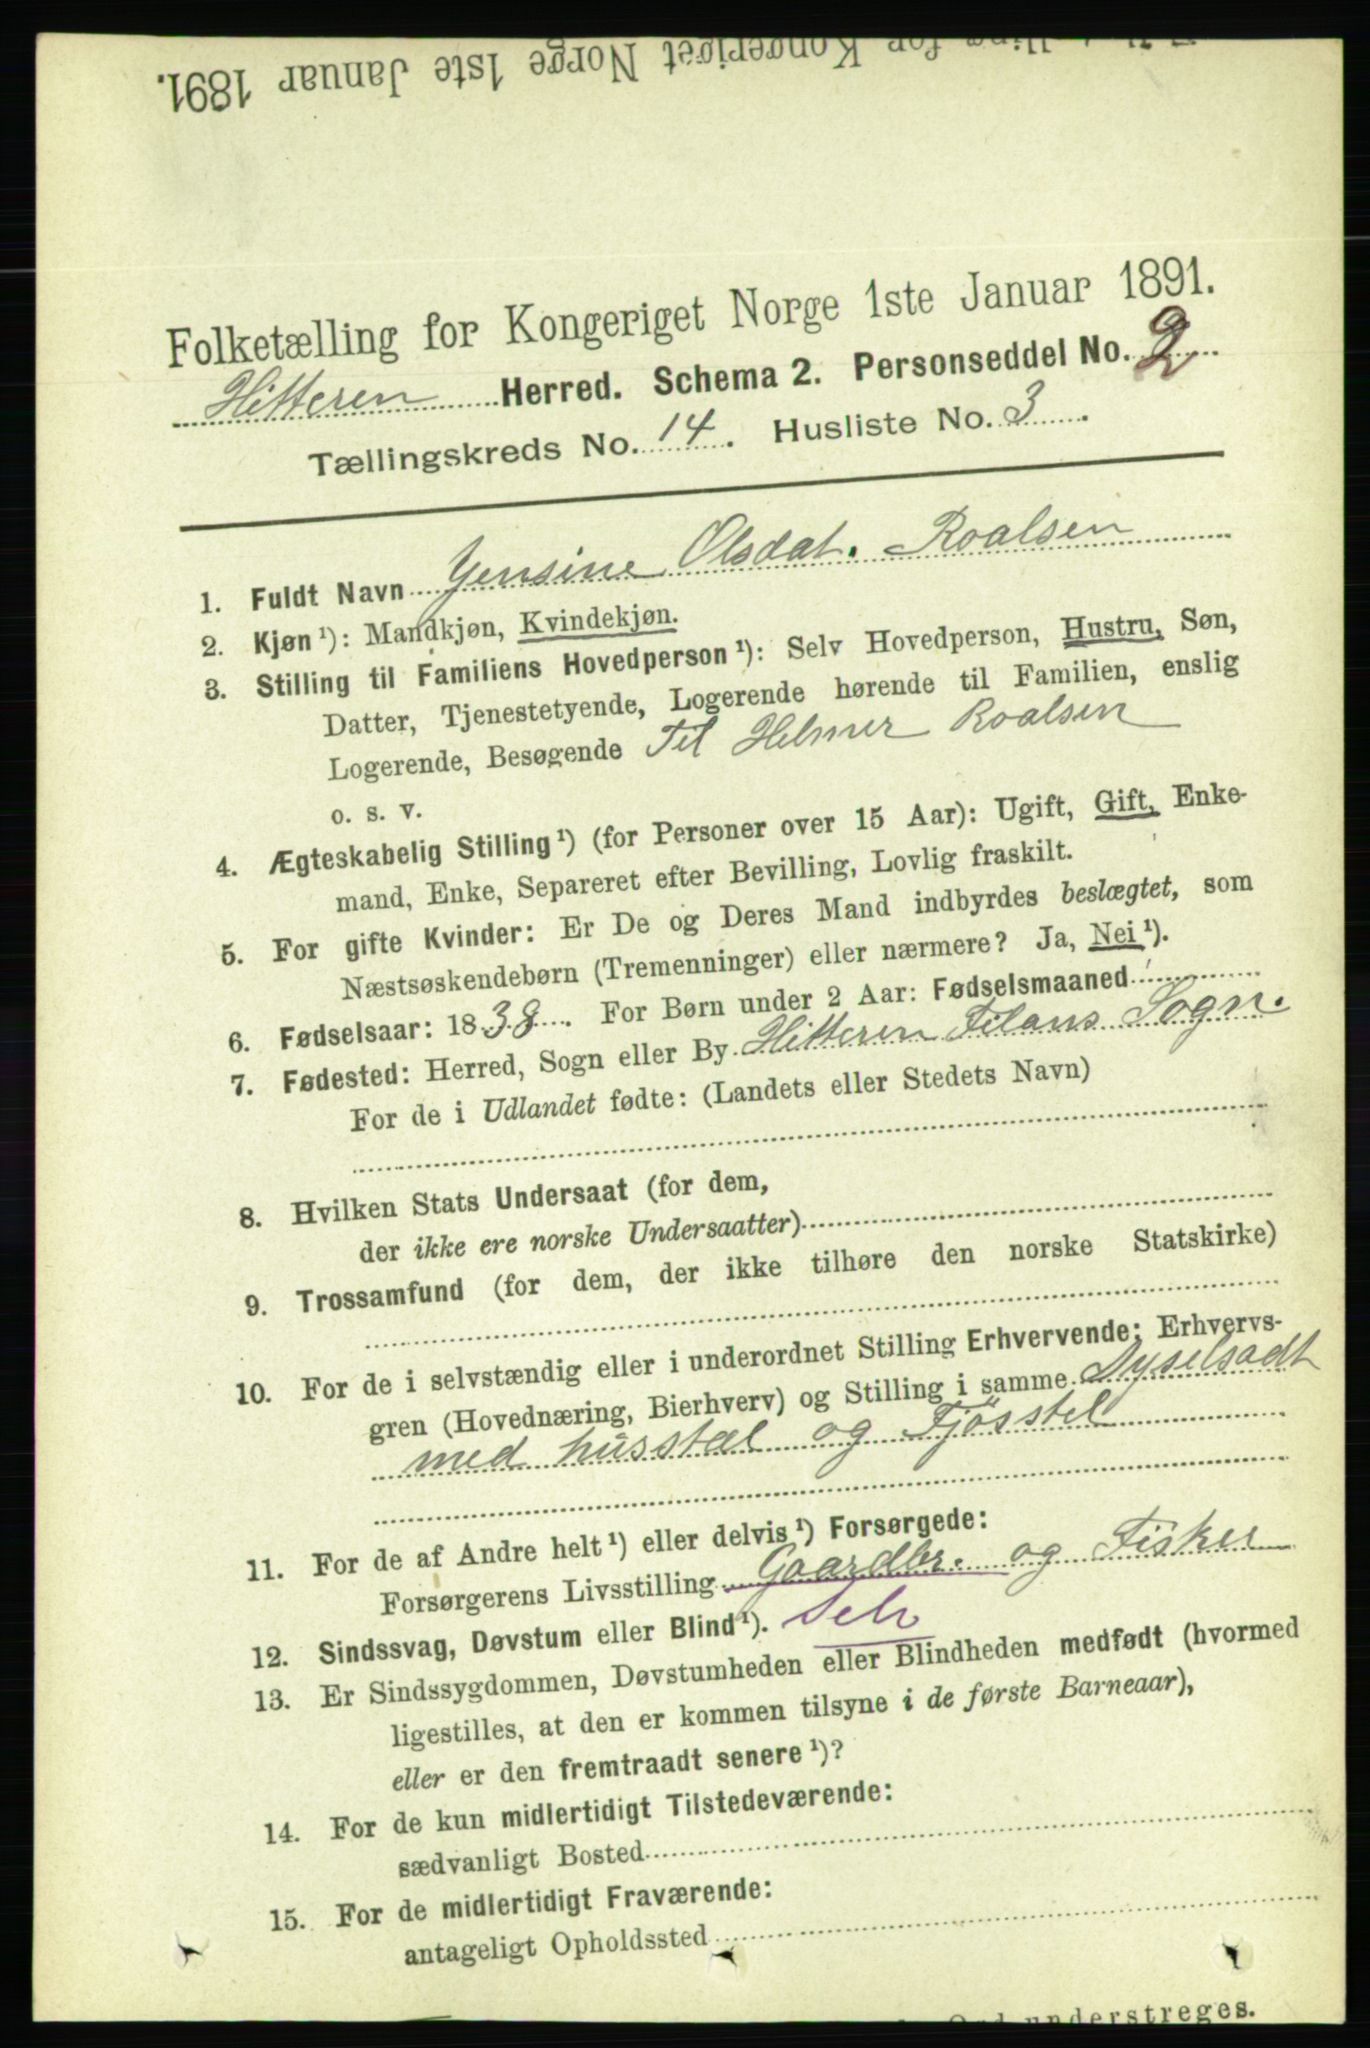 Folketælling for Kongeriget Norge 1ste Januar 1891.
Folketælling for Kongeriget Norge 1ste Januar 1891.
Hitteren Herred. Schema 2. Personseddel No. 2
Tællingskreds No. 14. Husliste No. 3.
1. Fuldt Navn Jensine Olsdat. Roalsen
2. Kjøn ¹): Mandkjøn, Kvindekjøn.
3. Stilling til Familiens Hovedperson ¹): Selv Hovedperson, Hustru, Søn,
Datter, Tjenestetyende, Logerende hørende til Familien, enslig
Logerende, Besøgende Til Helmer Roalsen
o. s. v.
4. Ægteskabelig Stilling ¹) (for Personer over 15 Aar): Ugift, Gift, Enke-
mand, Enke, Separeret efter Bevilling, Lovlig fraskilt.
5. For gifte Kvinder: Er De og Deres Mand indbyrdes beslægtet, som
Næstsøskendebørn (Tremenninger) eller nærmere? Ja, Nei ¹).
6. Fødselsaar: 1838. For Børn under 2 Aar: Fødselsmaaned
7. Fødested: Herred, Sogn eller By Hitteren Filans Sogn.
For de i Udlandet fødte: (Landets eller Stedets Navn)
8. Hvilken Stats Undersaat (for dem,
der ikke ere norske Undersaatter)
9. Trossamfund (for dem, der ikke tilhøre den norske Statskirke)
10. For de i selvstændig eller i underordnet Stilling Erhvervende: Erhvervs-
gren (Hovednæring, Bierhverv) og Stilling i samme Syselsadt
med husstel og Fjösstel
11. For de af Andre helt ¹) eller delvis ¹) Forsørgede:
Forsørgerens Livsstilling Gaardbr. og Fisker
12. Sindssvag, Døvstum eller Blind ¹).
13. Er Sindssygdommen, Døvstumheden eller Blindheden medfødt (hvormed
ligestilles, at den er kommen tilsyne i de første Barneaar),
eller er den fremtraadt senere ¹)?
14. For de kun midlertidigt Tilstedeværende:
sædvanligt Bosted
15. For de midlertidigt Fraværende:
antageligt Opholdssted
Ord understreges.